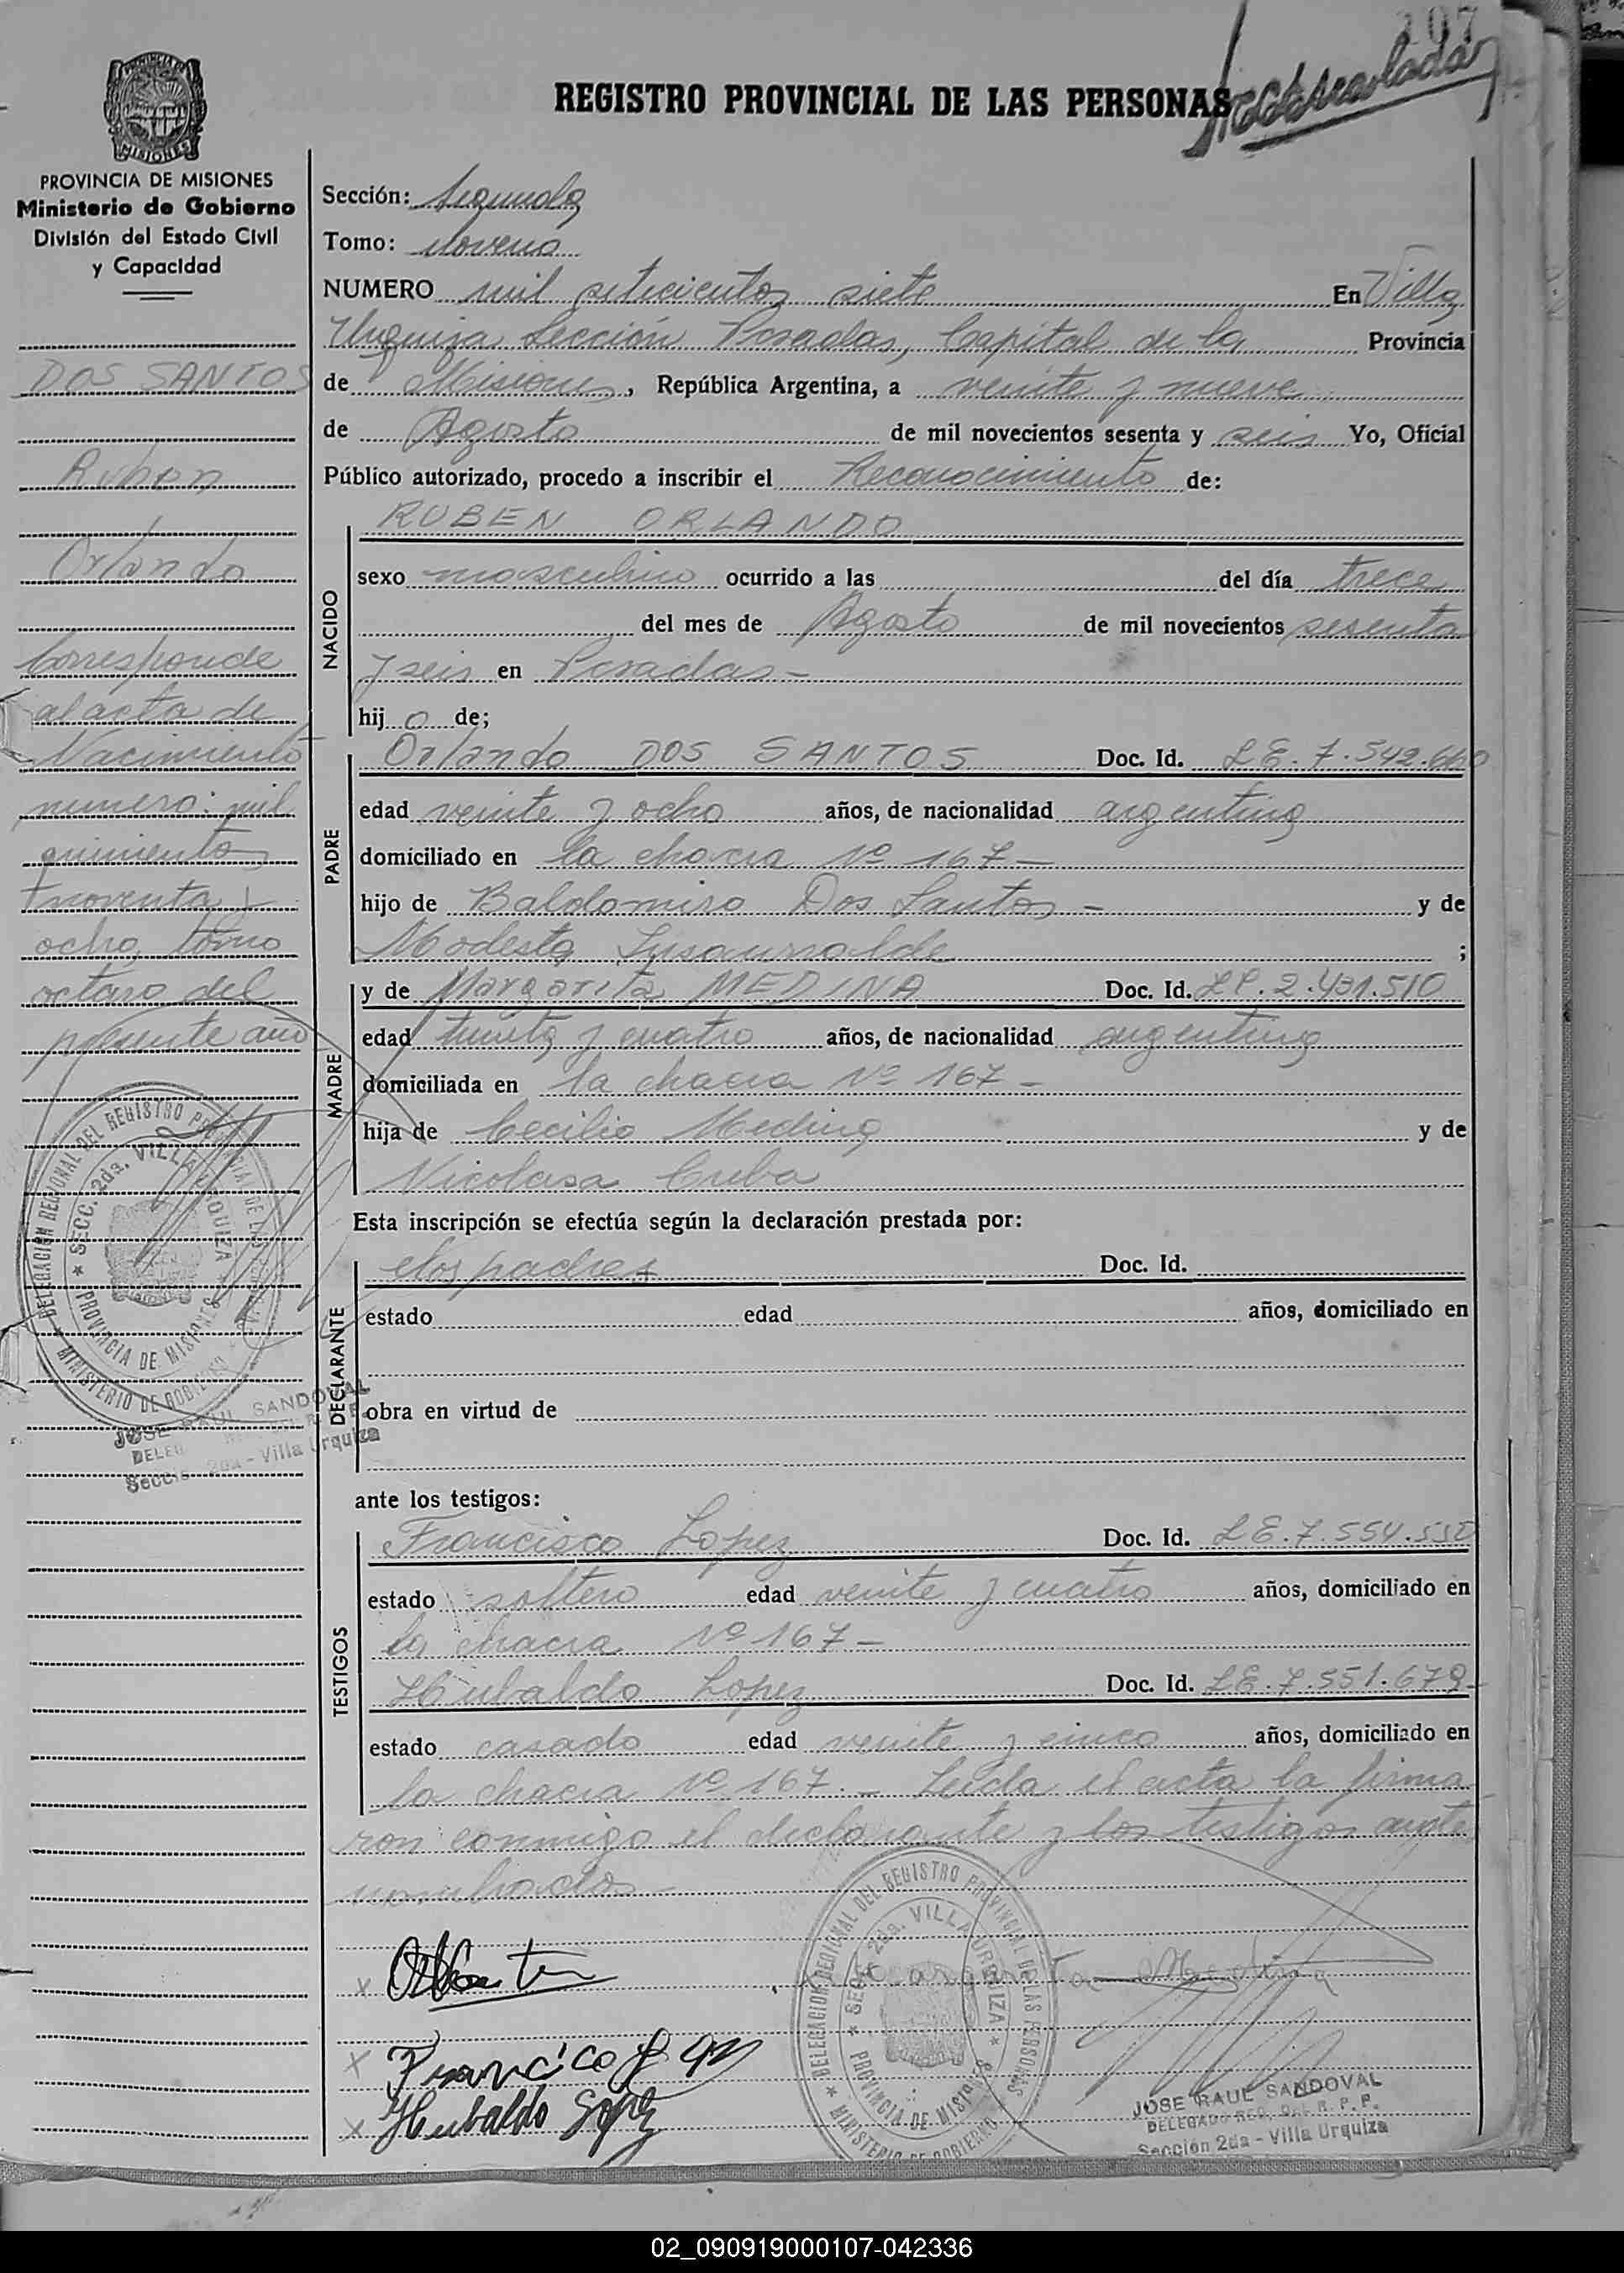 107
REGISTRO PROVINCIAL DE LAS PERSONAS
PROVINCIA DE MISIONES
Ministerio de Gobierno
División del Estado Civil
y Capacidad
DOS SANTOS
Ruben
Orlando
Corresponde
al acta de
Nacimiento
numero: mil
quinientos
noventa y
ocho, tomo
octavo del
presente año
DELEGACION REGIONAL DEL REGISTRO PROVINCIAL DE LAS PERSONAS
SECC. 2da. VILLA URQUIZA
PROVINCIA DE MISIONES
MINISTERIO DE GOBIERNO
JOSE RAUL SANDOVAL
Sección 2da - Villa Urquiza
Sección: Segunda
Tomo: Noveno
NUMERO mil setecientos siete En Villa
Urquiza Sección Posadas, Capital de la Provincia
de Misiones, República Argentina, a veinte y nueve
de Agosto de mil novecientos sesenta y seis Yo, Oficial
Público autorizado, procedo a inscribir el Reconocimiento de:
NACIDO
RUBEN ORLANDO
sexo masculino ocurrido a las del día trece
del mes de Agosto de mil novecientos sesenta
y seis en Posadas -
hijo de;
PADRE
Orlando DOS SANTOS Doc. Id. L.E. 7.542.660
edad veinte y ocho años, de nacionalidad argentina
domiciliado en la chacra Nº 167 -
hijo de Baldomiro Dos Santos - y de
Modesta Insaurralde ;
MADRE
y de Margarita MEDINA Doc. Id. 2.431.510
edad treinta y cuatro años, de nacionalidad argentina
domiciliada en la chacra Nº 167 -
hija de Cecilio Medina y de
Nicolasa Cuba
Esta inscripción se efectúa según la declaración prestada por:
DECLARANTE
los padres Doc. Id.
estado edad años, domiciliado en
obra en virtud de
ante los testigos:
TESTIGOS
Francisco Lopez Doc. Id. L.E. 7.554.
estado soltero edad veinte y cuatro años, domiciliado en
la chacra Nº 167 -
Hubaldo Lopez Doc. Id. L.E. 7.551.679-
estado casado edad veinte y cinco años, domiciliado en
la chacra Nº 167. - Leida el acta la firma
ron conmigo el declarante y los testigos ante
nombrados -
x
Margarita Medina
x Francisco
x Hubaldo Lopez
DELEGACION REGIONAL DEL REGISTRO PROVINCIAL DE LAS PERSONAS
SECC. 2da. VILLA URQUIZA
PROVINCIA DE MISIONES
MINISTERIO DE GOBIERNO
JOSE RAUL SANDOVAL
DELEGADO REG. DEL R. P. P.
Sección 2da - Villa Urquiza
02_090919000107-042336